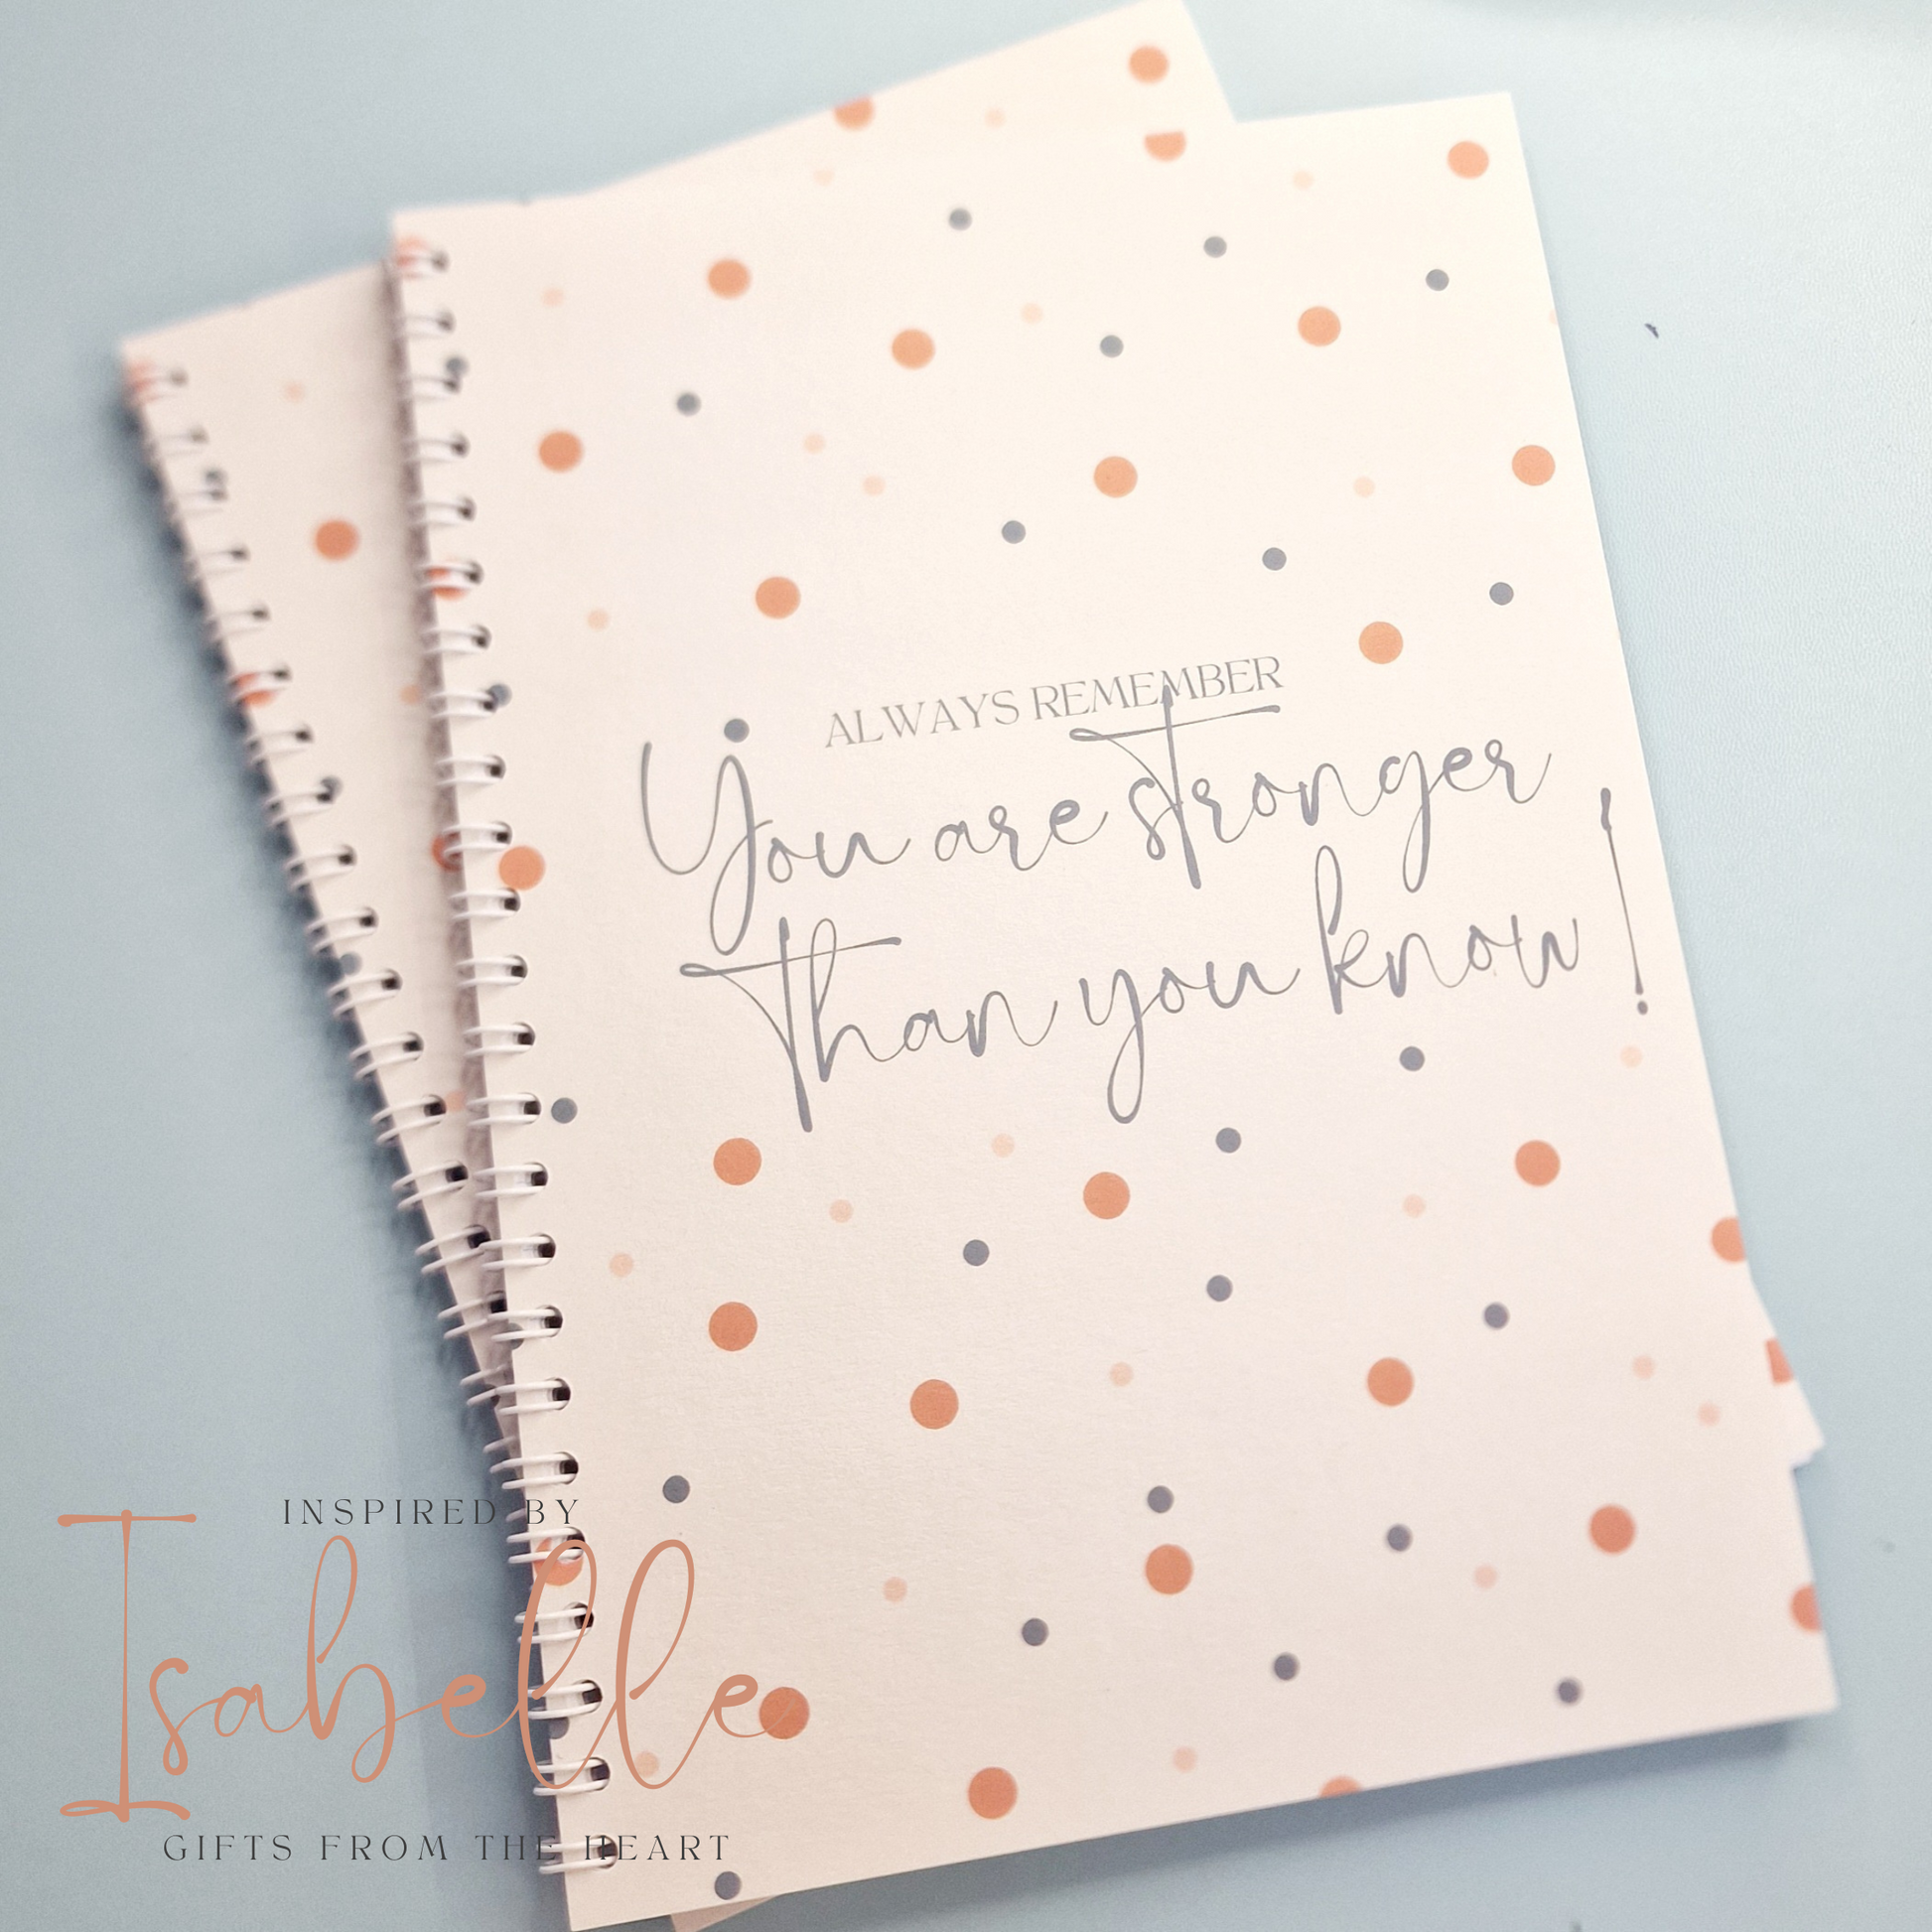 ALWAYS REMEMBER
You are stronger
Than you know!
INSPIRED BY
Isabelle
GIFTS FROM THE HEART